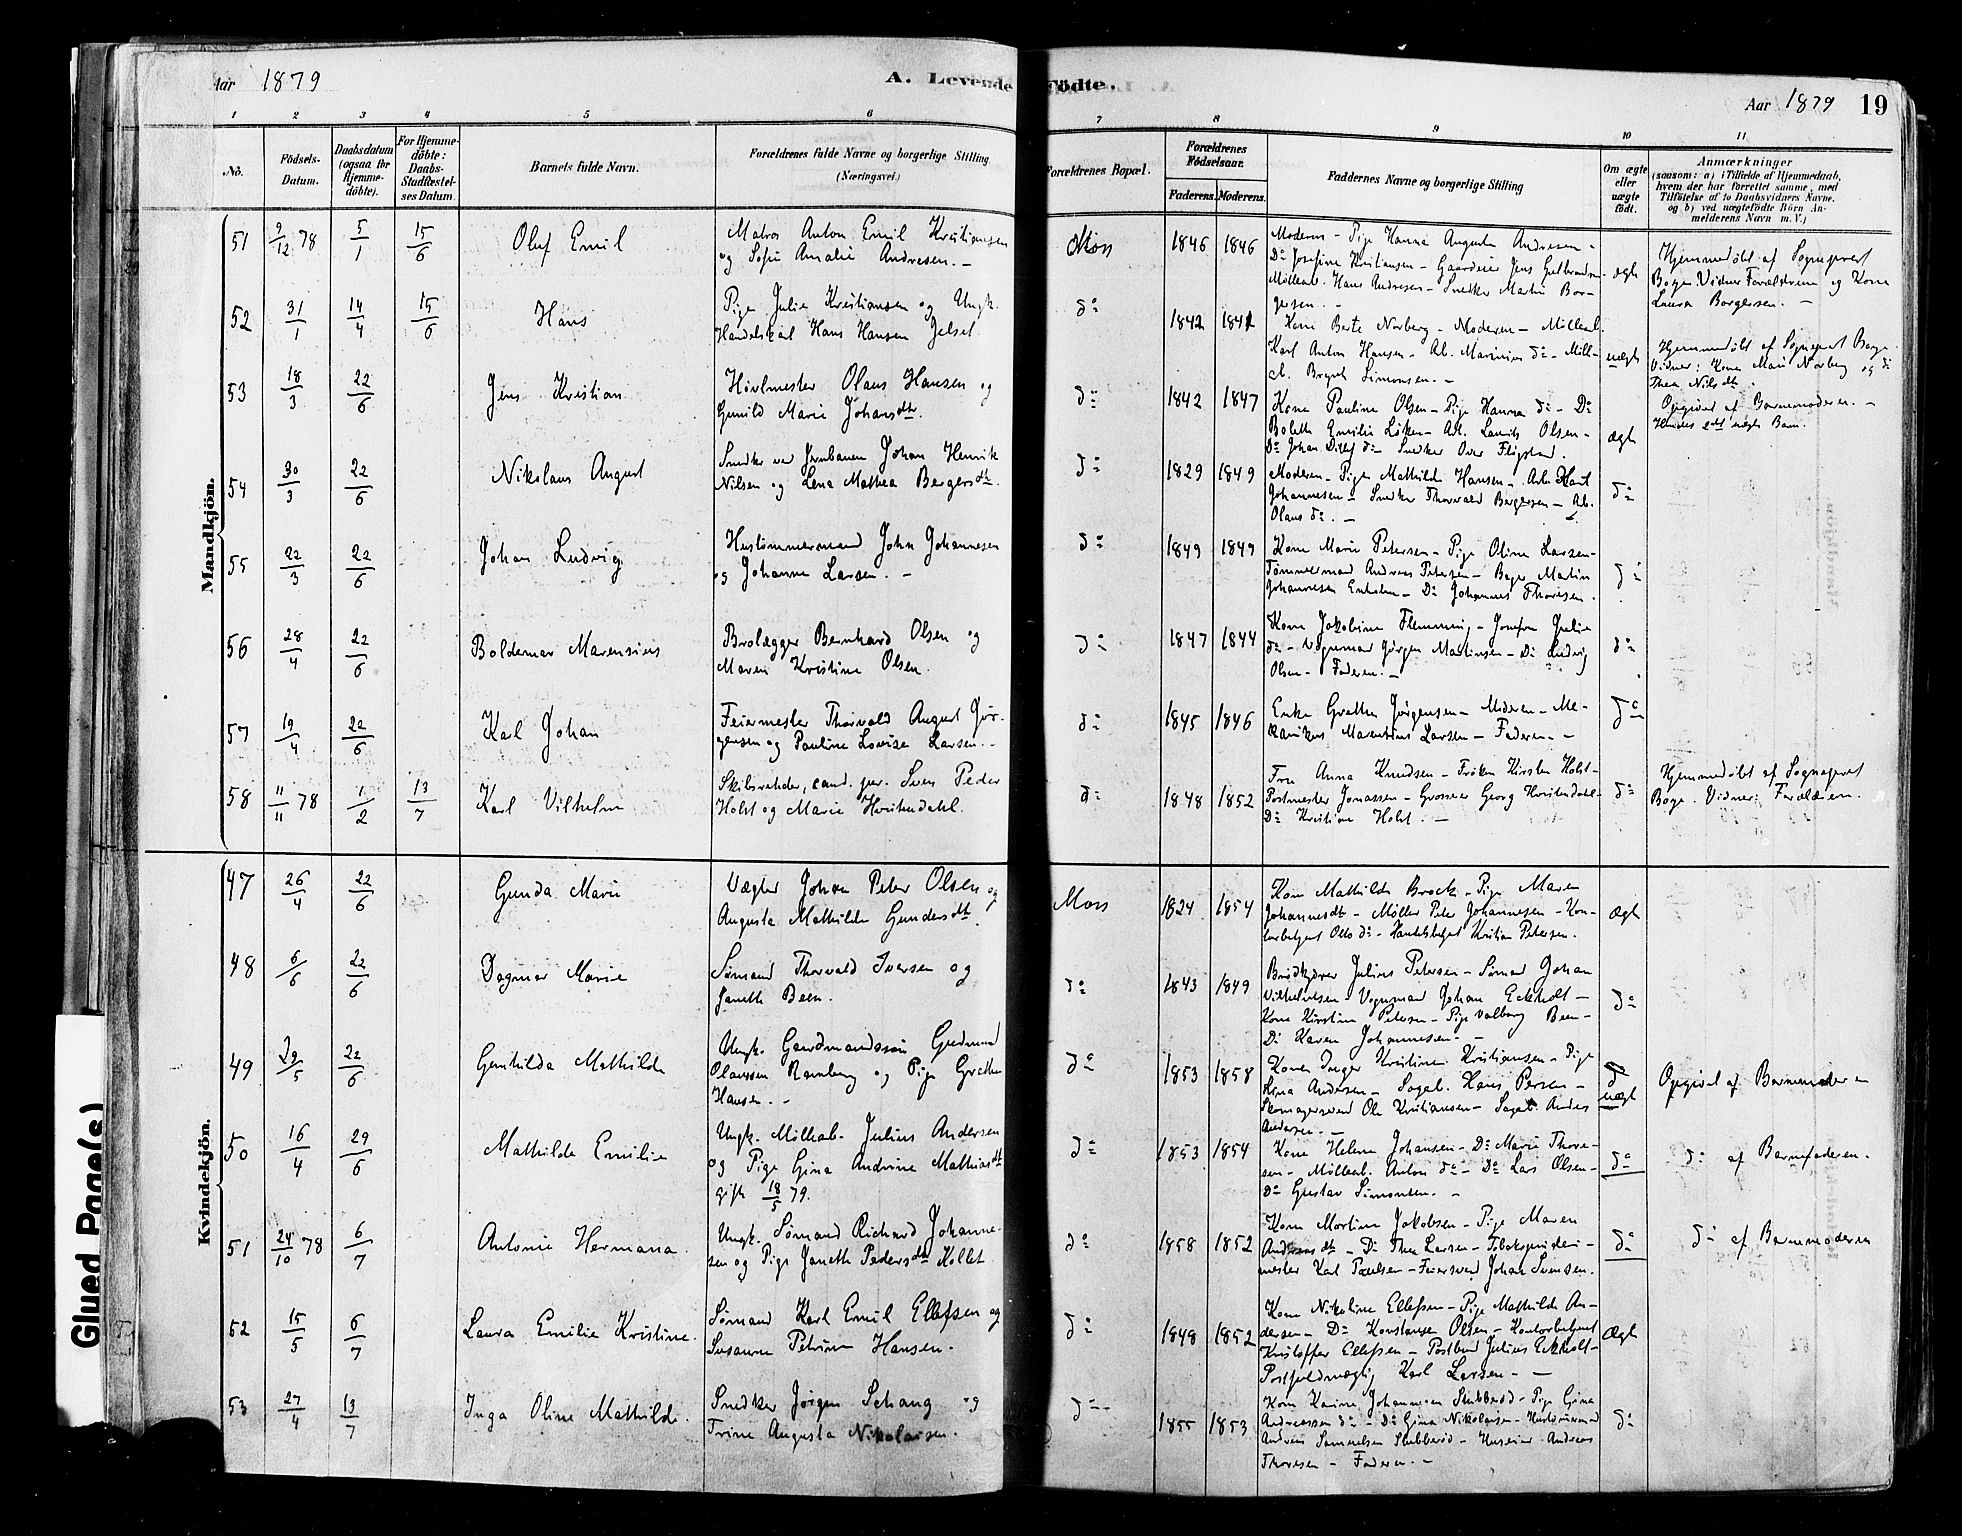 Aar 1879
A. Levende Födte.
Aar 1879 19
1 2 3 4 5 6 7 8 9 10 11
No.
Födsels-
Datum.
Daabsdatum
(ogsaa for
Hjemme-
döbte).
For Hjemme-
döbte:
Daabs-
Stadfæstel-
ses Datum.
Barnets fulde Navn.
Forældrenes fulde Navne og borgerlige Stilling
(Næringsvei.)
Forældrenes Bopæl.
Forældrenes
Födselsaar.
Faderens. Moderens.
Faddernes Navne og borgerlige Stilling
Om ægte
eller
uægte
födt.
Anmærkninger
(saasom: a) i Tilfælde af Hjemmedaab,
hvem der har forrettet samme, med
Tilföielse af to Daabsvidners Navne,
og b) ved uægtefödte Börn An-
melderens Navn m. V.)
Mandkjön.
51 9/12 78 5/1 15/6 Oluf Emil
Matros Anton Emil Kristiansen
og Sofie Amalie Andresen. –
Moss 1846 1846
Moderen – Pige Hanna Augusta Andresen –
Do Josefine Kristiansen – Gaardeier Jens Gulbrandsen –
Möllearb. Hans Andresen – Snedker Martin Bor-
gersen. –
ægte
Hjemmedöbt af Sogneprest
Boge. Vidner Forældrene og Kone
Laura Borgersen. –
52 31/1 14/4 15/6 Hans
Pige Julie Kristiansen og Ungk.
Handelskarl Hans Hansen Jelset
do 1842 1841
Kone Berte Norberg – Moderen – Möllearb.
Karl Anton Hansen – Ab. Marinius do – Mölle-
Simonsen. –
uægte
Hjemmedöbt af Sogneprest Boge.
Vidner: Kone Mari Norberg og do
Thea Nilsdtr.
Opgivet af Barnemoderen. –
Hendes 2det uægte Barn.
53 18/3 22/6 Jens Kristian
Hövlmester Olaus Hansen og
Gunild Marie Johansdtr.
do 1842 1847
Kone Pauline Olsen – Pige Hanna do – Do
Bolette Emilie Löken – Arb. Laurits Olsen –
Do Johan do – Snedker Over Fligstad.
ægte
54 30/3 22/6 Nikolaus August
Snedker ved Jernbanen Johan Henrik
Nilsen og Lena Mathea Bergersdtr.
do 1829 1849
Moderen – Pige Mathilde Hansen – Arb.
Johannesen – Snedker Thorvald Bergersen – Ab.
Olaus do. –
do
55 22/3 22/6 Johan Ludvig
Hustömmermand John Johannesen
og Johanne Larsen. –
do 1849 1849
Kone Marie Petersen – Pige Oline Larsen –
Tömmermand Andreas Petersen – Bager Martin
Johannesen – Do Johannes Thoresen.
do
56 28/4 22/6 Boldemar Marensius
Brolægger Bernhard Olsen og
Maren Kristine Olsen.
do 1847 1844
Kone Jakobine Flemming – Jomfru Julie
do – Vognmand Jörgen Martinsen – Do Ludvig
Olsen – Faderen. –
do
57 19/4 22/6 Karl Johan
Feiermester Thorvald August Jör-
gensen og Pauline Lovise Larsen. –
do 1845 1846
Enke Grethe Jörgensen – Moderen – Me-
kanikus Larsen – Faderen. –
do
58 11/11 78 1/2 13/7 Karl Vilhelm
Skibsreder, cand. jur. Sven Peder
Holst og Marie Hvitendahl.
do 1848 1852
Fru Anna Knudsen – Fröken Kirsten Holst –
Postmester Jonassen – Grosserer Georg Hvitendahl –
Do Kristian Holst. –
do
Hjemmedöbt af Sogneprest
Boge. Vidner: Forældrene.
Kvindekjön.
47 26/4 22/6 Gunda Marie
Vægter Johan Peter Olsen og
Augusta Mathilde Gundersdtr.
Moss 1824 1854
Kone Mathilde Brock – Pige Maren
Johannesdtr – Møller Peter Johannesen – Kon-
torbetjent Otto do – Handelsbetjent Kristian Petersen.
ægte
48 6/6 22/6 Dagmar Marie
Sømand Thorvald Iversen og
Janette Been.
do 1843 1849
Brödkjører Julius Petersen – Sömand Johan
Vilhelmsen – Vognmand Johan Eckholt –
Kone Kirstine Petersen – Pige Valborg Been –
Do Karen Johannesen. –
do
49 29/5 22/6 Gunhilda Mathilde
Ungk. Gaardmandssøn Gudmund
Olaussen Ramberg og Pige Grethe
Hansen. –
do 1853 1858
Kone Inger Kristine Kristiansen – Pige
Lina Andersen – Sagab. Hans Persen –
Skomagersvend Ole Kristiansen – Sagab. Anders
Andersen. –
do
uægte
Opgivet af Barnemoderen
50 16/4 29/6 Mathilde Emilie
Ungk. Mölleab. Julius Andersen
og Pige Gina Andrine Mathiasdtr
gift 18/5 79.
do 1853 1854
Kone Helene Johansen – Do Marie Thore-
sen – Mölleab. Anton do – Do Lars Olsen –
Do Gustav Simonsen. –
do
do af Barnefaderen.
51 24/10 78 6/7 Antonie Hermana.
Ungk. Sømand Richard Johanne-
sen og Pige Janette Pedersdtr Kollet
do 1858 1852
Kone Martine Jakobsen – Pige Maren
Andreasdtr – Do Thea Larsen – Tobakspinderi-
mester Karl Paulsen – Feiersvend Johan Svensen.
do
do af Barnemoderen
52 15/5 6/7 Laura Emilie Kristine.
Sømand Karl Emil Ellefsen og
Susanne Petrine Hansen.
do 1848 1852
Kone Nikoline Ellefsen – Pige Mathilde An-
dersen – Do Konstanse Olsen – Kontorbetjent
Kristoffer Ellefsen – Postbud Julius Eckholt –
Postfuldmægtig Karl Larsen. –
Ægte
53 27/4 13/7 Inga Oline Mathilde.
Snedker Jørgen Schang og
Trine Augusta Nikolaisen.
do 1855 1853
Kone Karine Johannesen Stubberød – Pige Gina
Andreassen do – Do Gina Nikolaisen –
Andreas Samuelsen Stubberød – Huseier Andreas
Thoresen – Faderen. –
do
Glued Page(s)